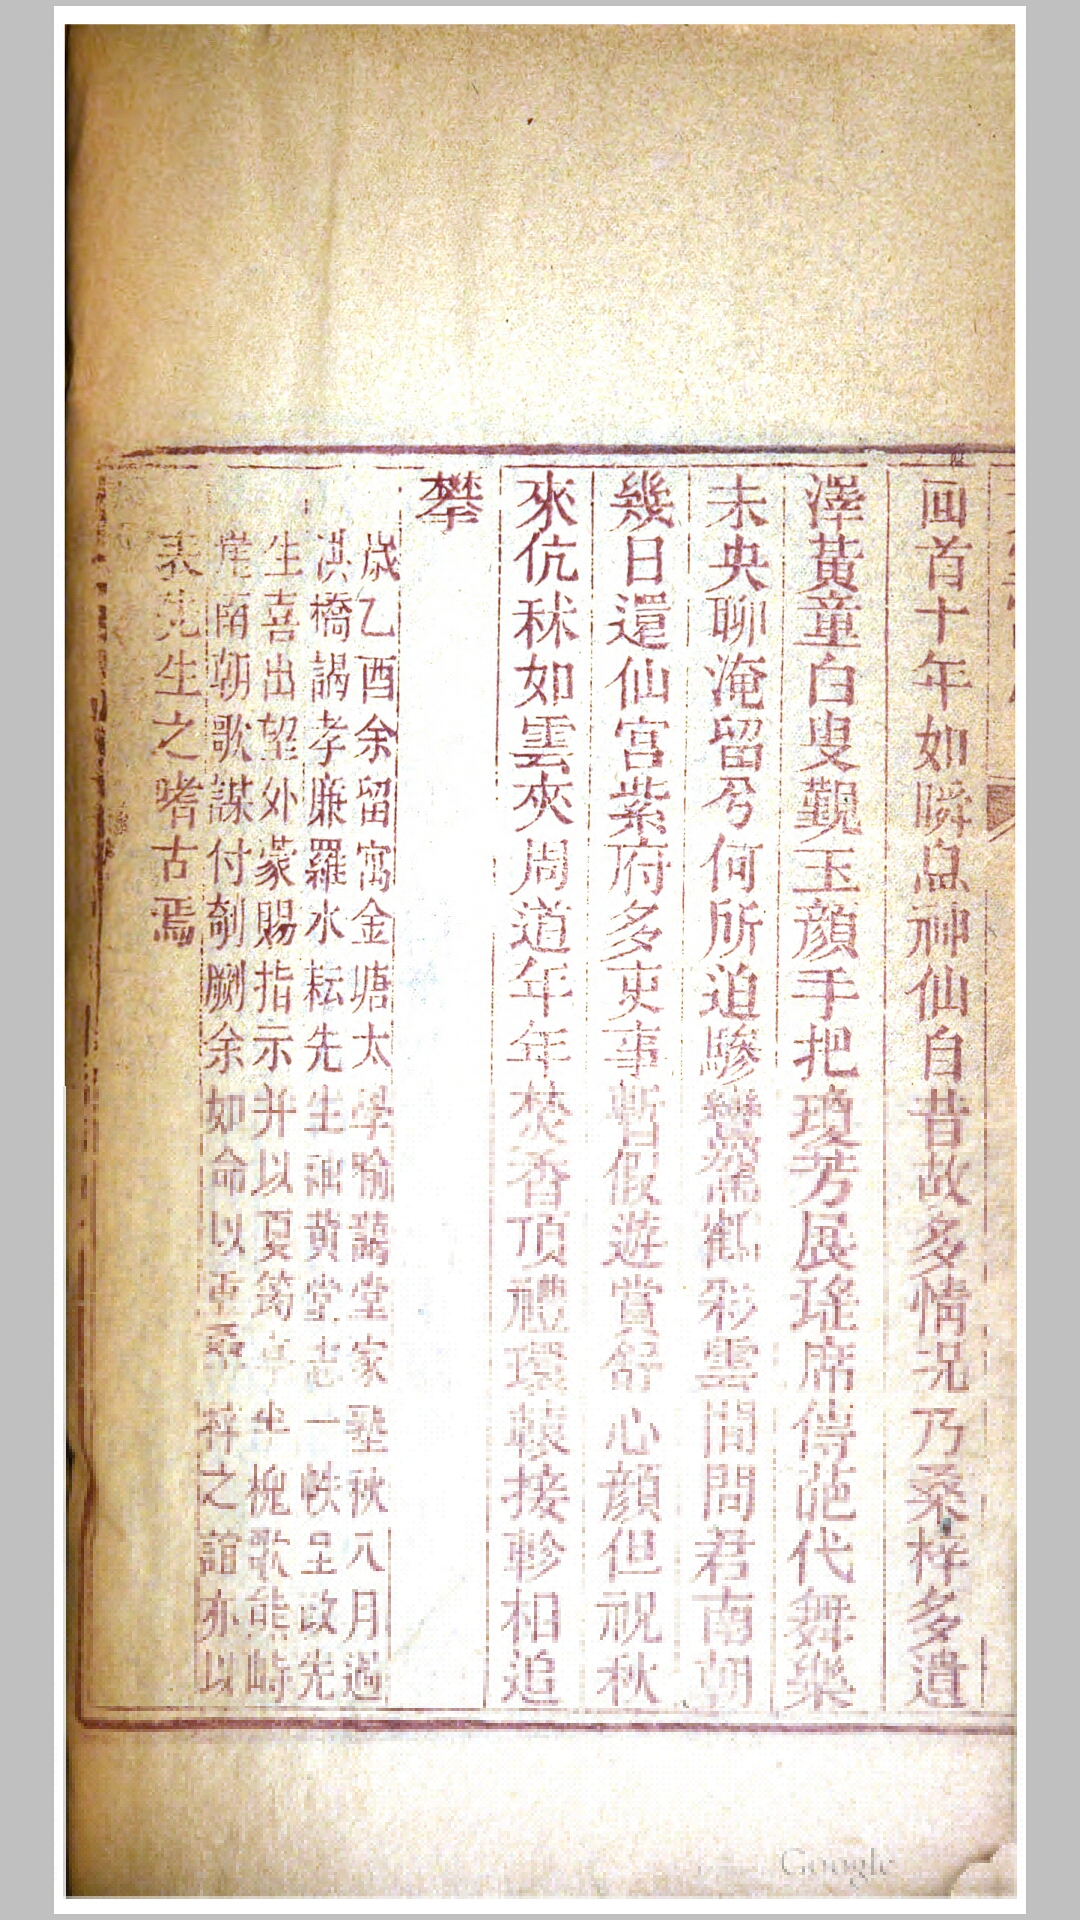 囬首十年如瞬息神仙自昔故多情况乃桑梓多遺
澤黃童白叟覲玉顏手把瓊芳展瑤席傳葩代舞樂
未央聊淹留兮何所迫驂鸞鶴彩雲間問君南朝
幾日還仙宫紫府多吏事暫假遊賞舒心顏但視秋
來伉秫如雲夾周道年年焚香頂禮環轅接軫相追
攀
歲乙酉余留寓金塘太學喻藹堂家塾秋八月過
洪橋謁孝廉羅水耘先生詶黄堂志一帙呈政先
生喜出望外蒙賜指示并以夏筠亭坐槐歌熊崎
崖南朝歌謀付剞劂余如命以重桑梓之誼亦以
表先生之嗜古焉
Google